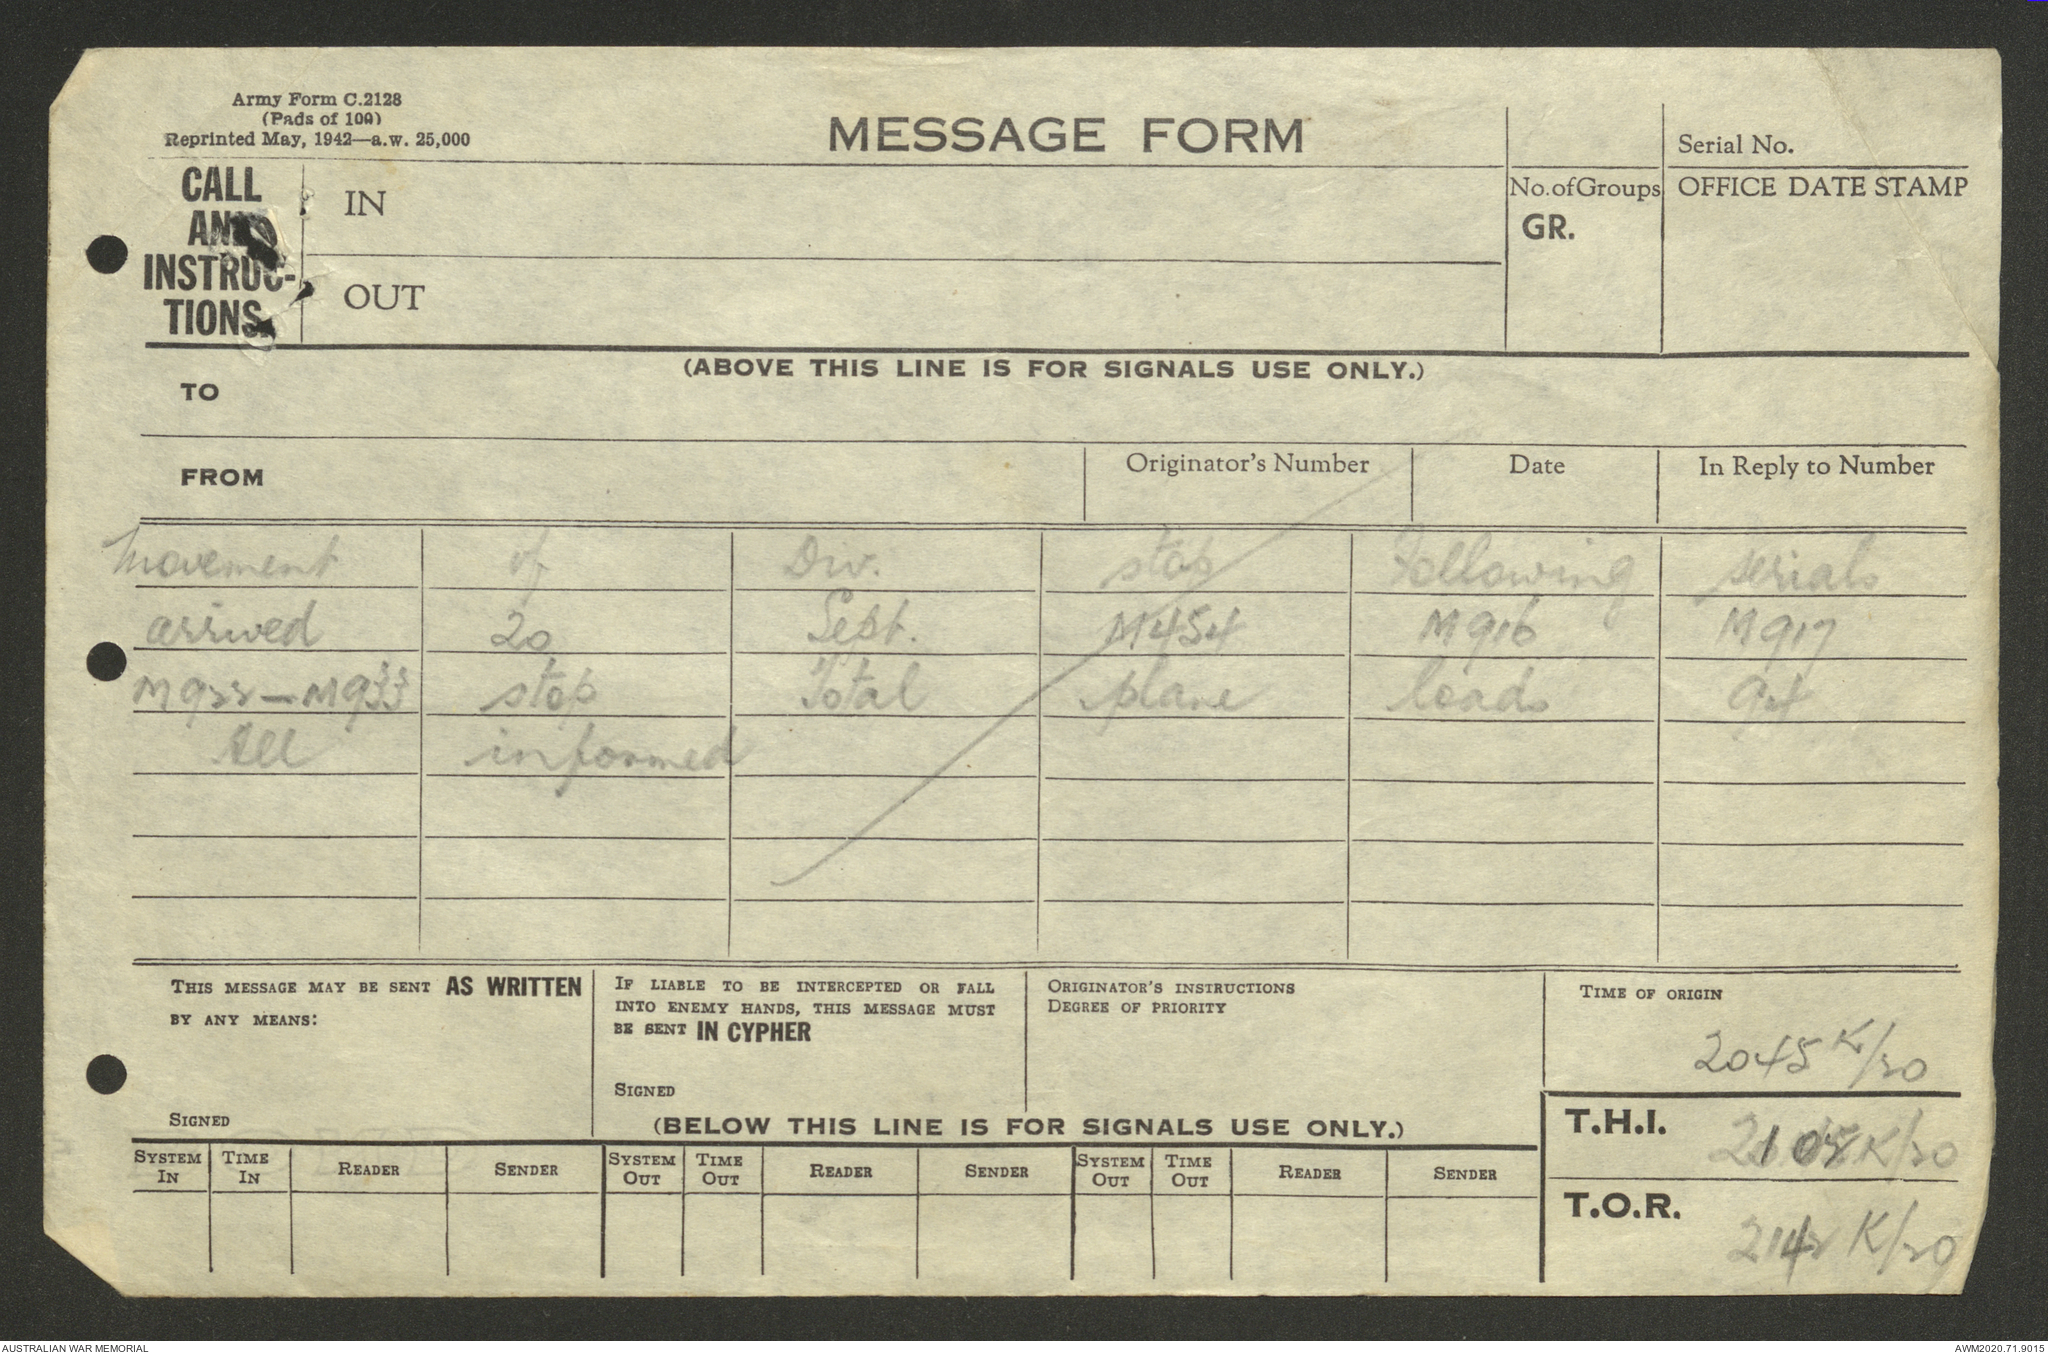 Army Form C.2128
(Pads of 100)
Reprinted May, 1942—a.w. 25,000
MESSAGE FORM
Serial No.
CALL AND INSTRUC-TIONS.
IN
OUT
No. of Groups
GR.
OFFICE DATE STAMP
(ABOVE THIS LINE IS FOR SIGNALS USE ONLY.)
TO
FROM
Originator's Number
Date
In Reply to Number
Movement of Div. stop Following serials
arrived 20 Sept. M454 M916 M917
M922 — M933 stop Total plane loads 94
All informed
THIS MESSAGE MAY BE SENT AS WRITTEN
BY ANY MEANS:
SIGNED
IF LIABLE TO BE INTERCEPTED OR FALL
INTO ENEMY HANDS, THIS MESSAGE MUST
BE SENT IN CYPHER
SIGNED
ORIGINATOR'S INSTRUCTIONS
DEGREE OF PRIORITY
TIME OF ORIGIN
2045 K/20
(BELOW THIS LINE IS FOR SIGNALS USE ONLY.)
T.H.I.
K/20
SYSTEM IN TIME IN READER SENDER SYSTEM OUT TIME OUT READER SENDER SYSTEM OUT TIME OUT READER SENDER
T.O.R.
2142 K/20
AUSTRALIAN WAR MEMORIAL
AWM2020.71.9015